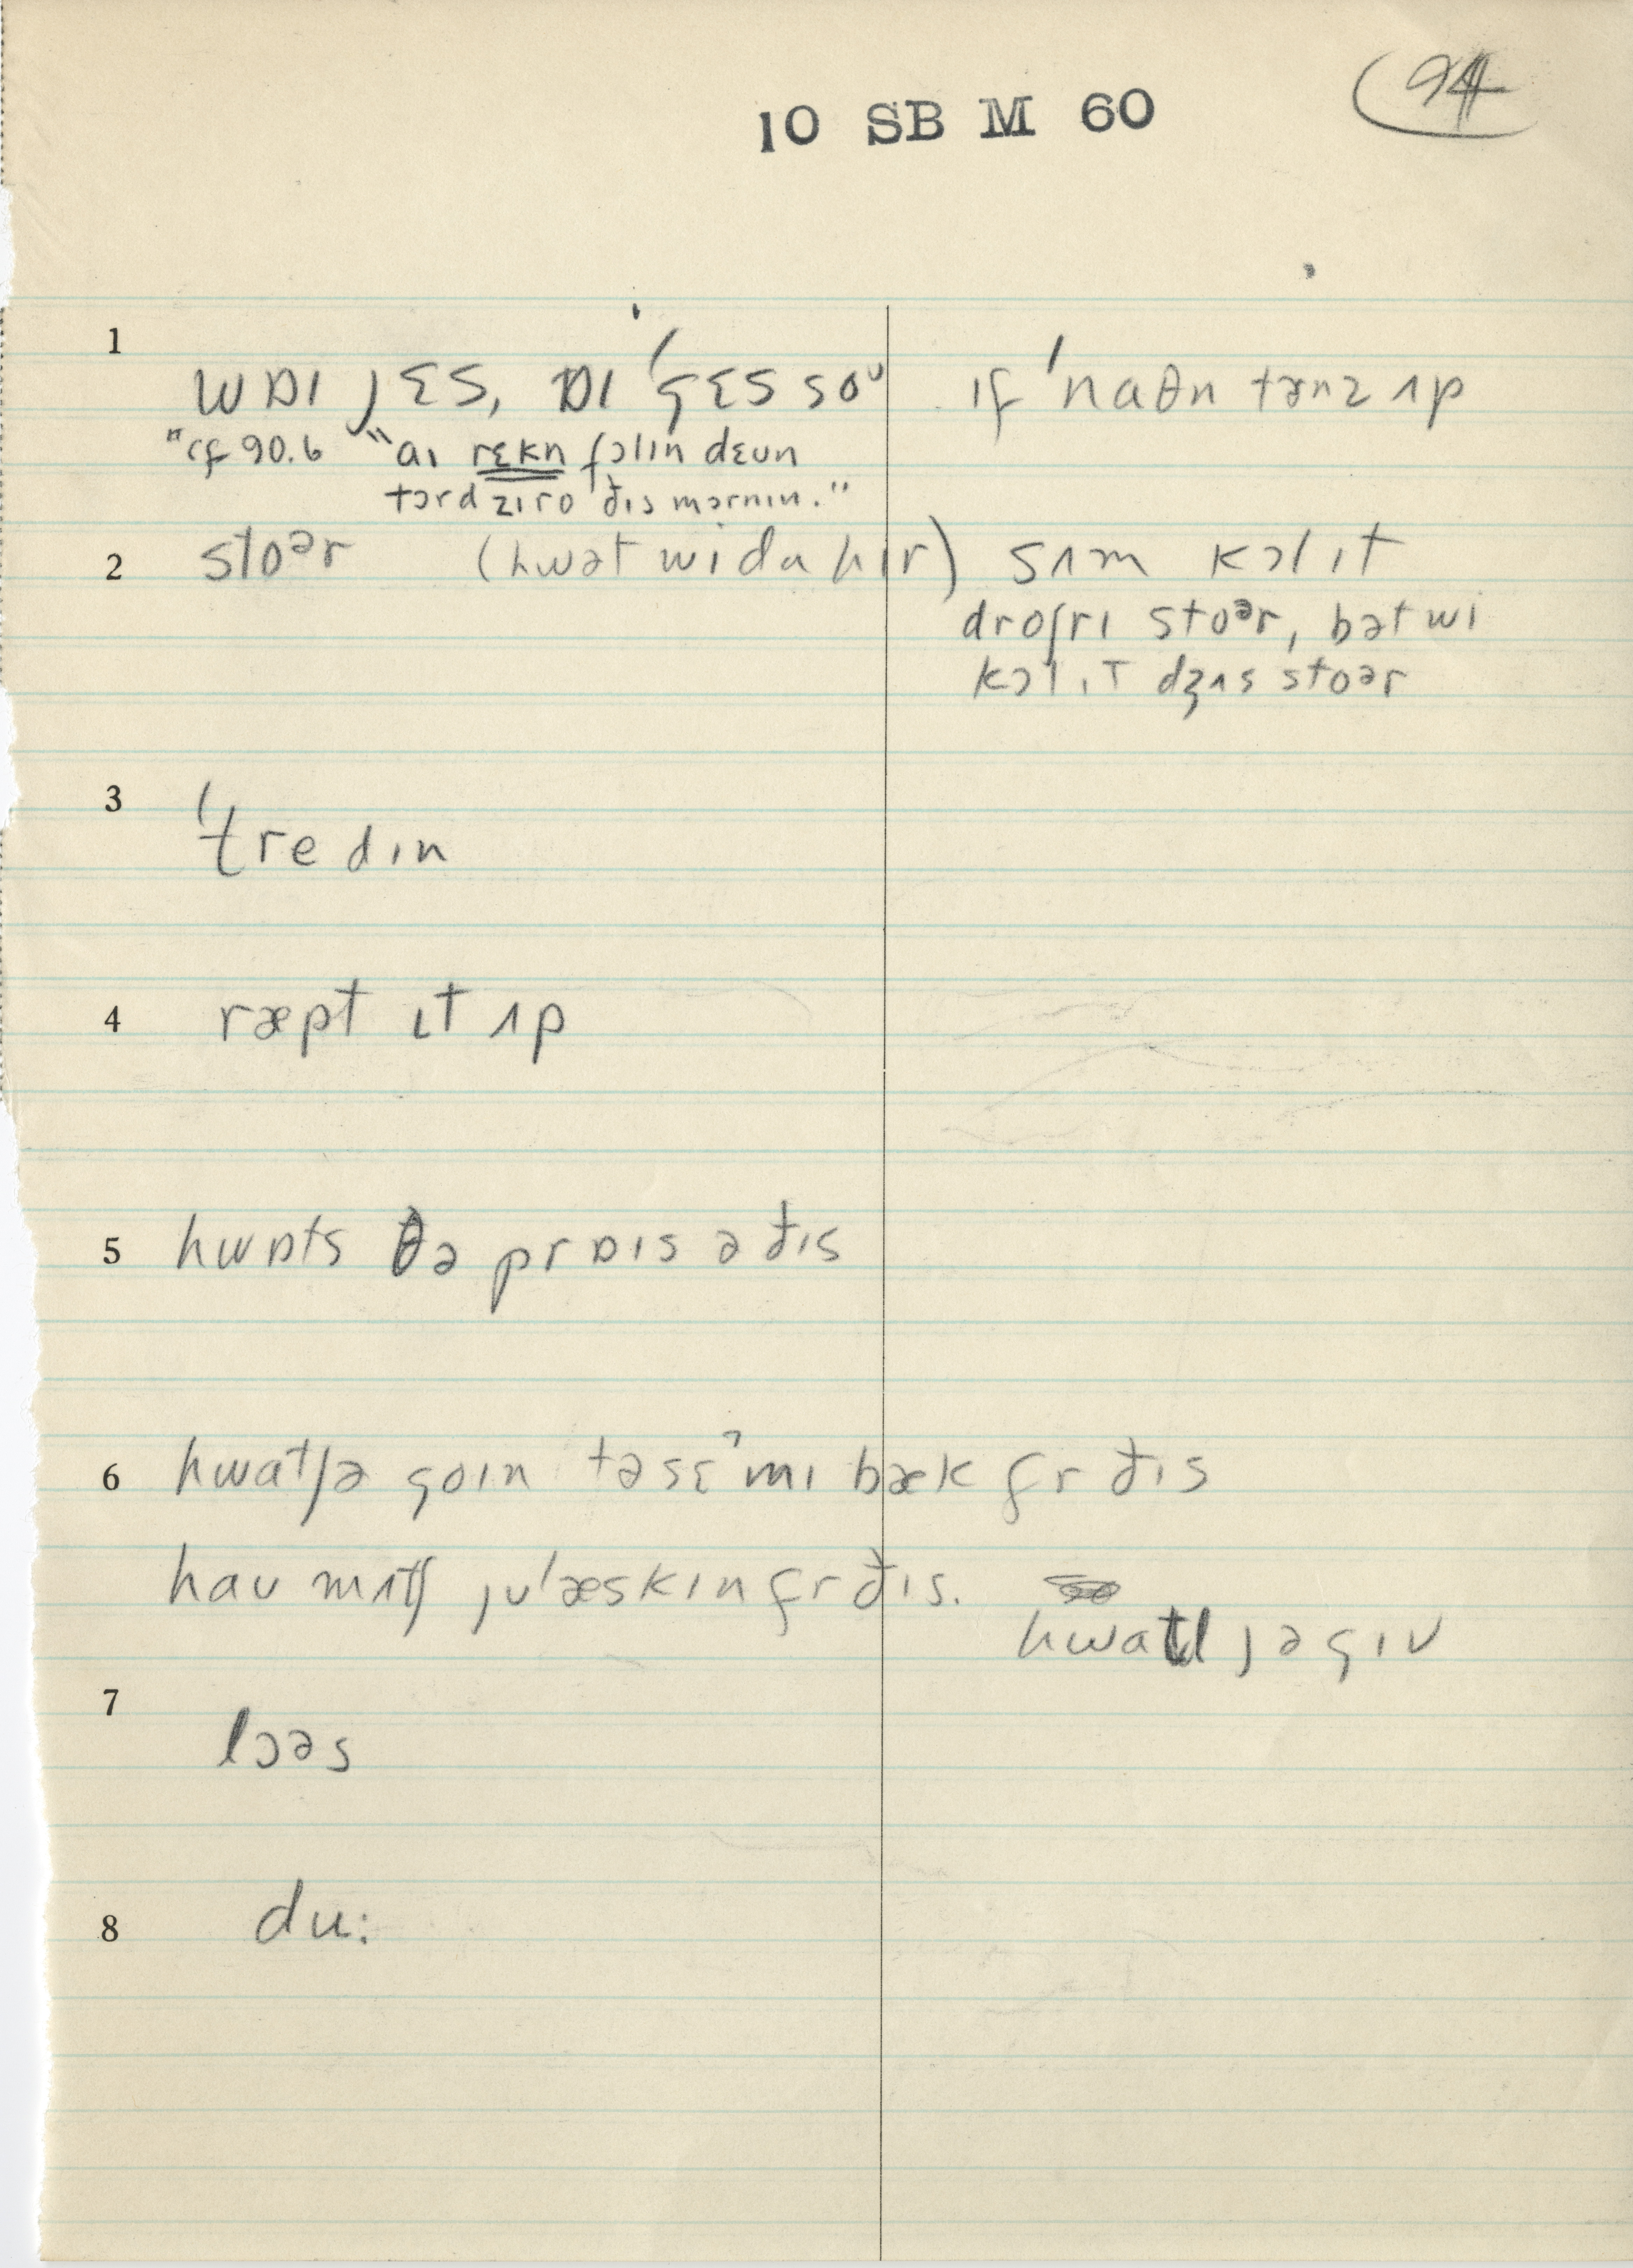 10 SB M 60
94
1
wɒɪ jɛs, ɒɪ 'gɛs soᶷ ɪf 'naθn tərnz ʌp
"cf 90.6 "aɪ rɛkn fɔlɪn dɛʊn
tɔrd zɪro ðɪs mɔrnɪn."
2 stoᵊr (hwət wi də hɪr) sʌm kɔl ɪt
droʃrɪ stoᵊr, bət wi
kɔl ɪt dʒʌs stoər
3 'tredɪn
4 ræpt ɪt ʌp
5 hwɒts ðə prɒɪs ə ðɪs
6 hwatʃə goɪn təsɛˀmɪ bæk fr ðɪs
haʊ mʌtʃ jʊ'æskɪn fr ðɪs.
hwatl jə gɪv
7 lɔəs
8 du: